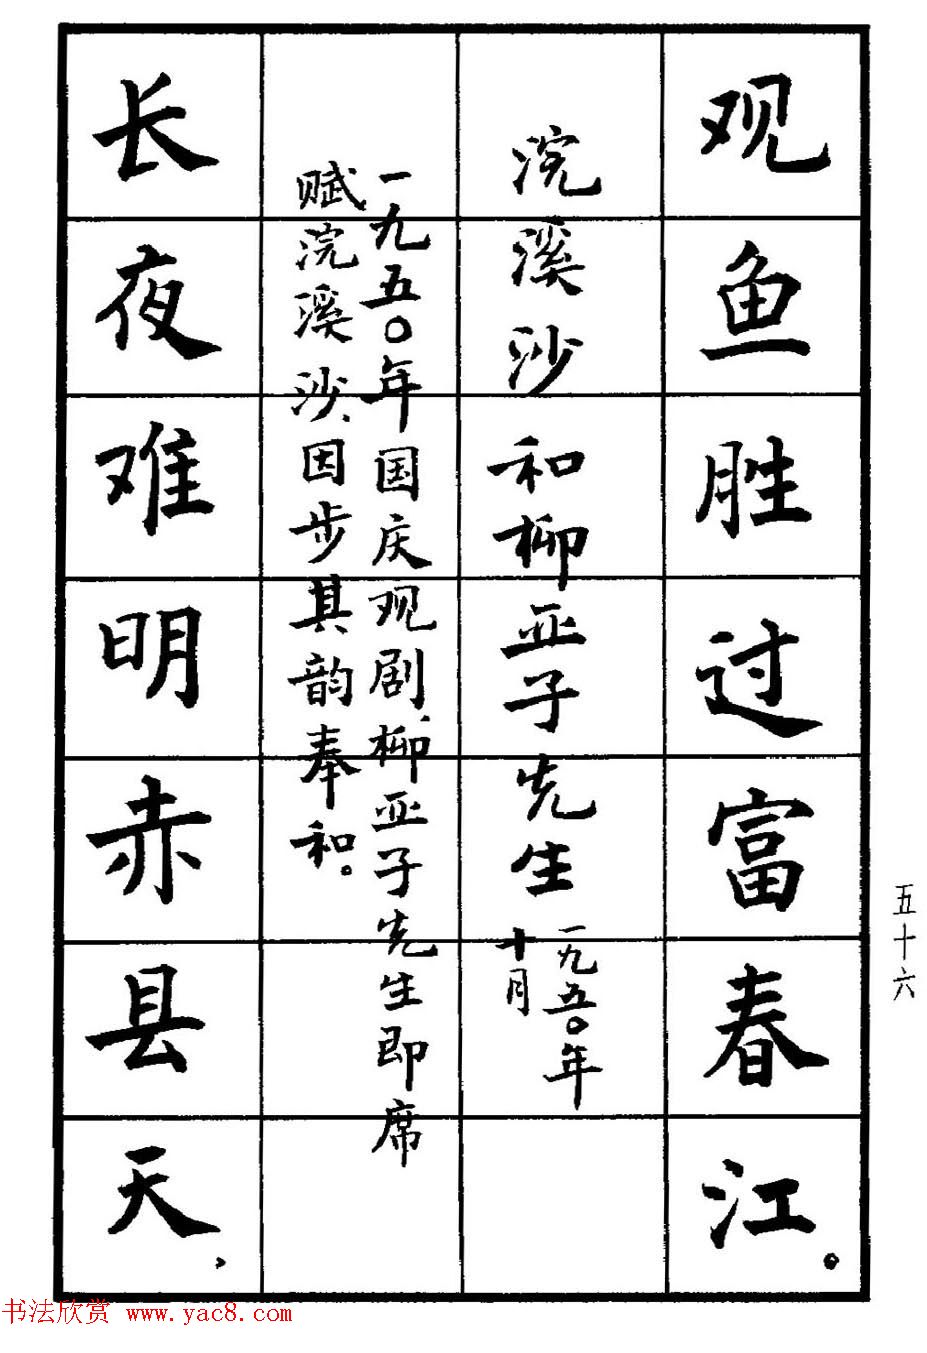 观鱼胜过富春江。
浣溪沙 和柳亚子先生 一九五〇年
十月
一九五〇年国庆观剧，柳亚子先生即席
赋浣溪沙，因步其韵奉和。
长夜难明赤县天，
五十六
书法欣赏 www.yac8.com